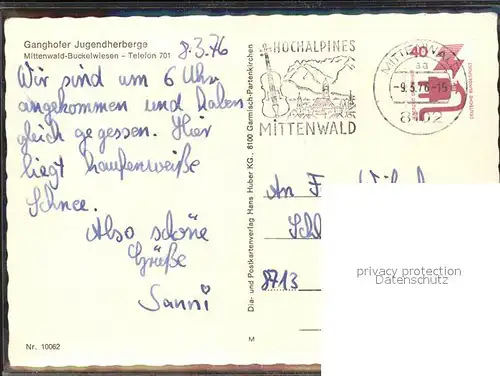 Ganghofer Jugendherberge
Mittenwald-Buckelwiesen - Telefon 701
8.3.76
Wir sind um 6 Uhr
angekommen und haben
gleich gegessen. Hier
liegt haufenweiße
Schnee.
Also schöne
Grüße
Sanni
Nr. 10062
Dia- und Postkartenverlag Hans Huber KG. 8100 Garmisch-Partenkirchen
M
HOCHALPINES
MITTENWALD
MITTENWALD
aa
-9.3.76-15
8102
40
An F
Schl
8713
privacy protection
Datenschutz